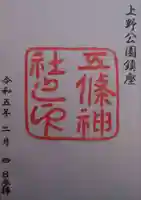 上野公園鎮座
五條神
社之印
令和五年二月四日参拝